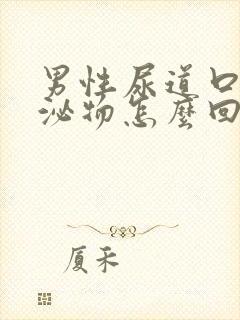 男性尿道口
泌物怎麼回
厦禾